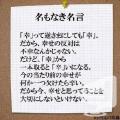 名もなき名言
「幸」って逆さまにしても「幸」。
だから、幸せの反対は
不幸なんかじゃない。
だけど、「幸」から
一本取ると「辛」になる。
今の当たり前の幸せが
何か一つ欠けたら辛い。
だから今、幸せと思ってることを
大切にしないといけない。